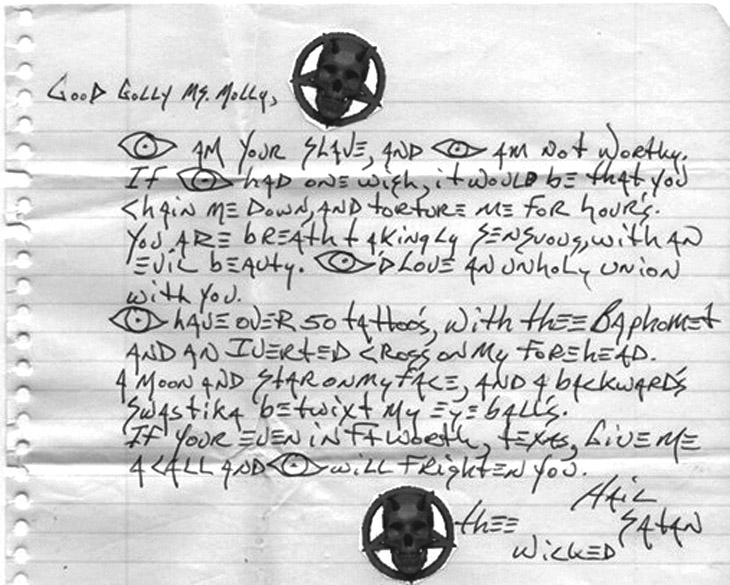 Good Golly Ms. Molly,
👁 AM YOUR SLAVE, AND 👁 AM NOT WORTHY.
IF 👁 HAD ONE WISH, IT WOULD BE THAT YOU
CHAIN ME DOWN, AND TORTURE ME FOR HOUR'S.
YOU ARE BREATHTAKINGLY SENSUOUS, WITH AN
EVIL BEAUTY. 👁'D LOVE AN UNHOLY UNION
WITH YOU.
👁 HAVE OVER 50 TATTOO'S, WITH THEE BAPHOMET
AND AN IVERTED CROSS ON MY FOREHEAD.
A MOON AND STAR ON MY FACE, AND A BACKWARD'S
SWASTIKA BETWIXT MY EYEBALL'S.
IF YOUR EVEN IN FT WORTH, TEXAS, GIVE ME
A CALL AND 👁 WILL FRIGHTEN YOU.
HAIL
SATAN
THEE
WICKED